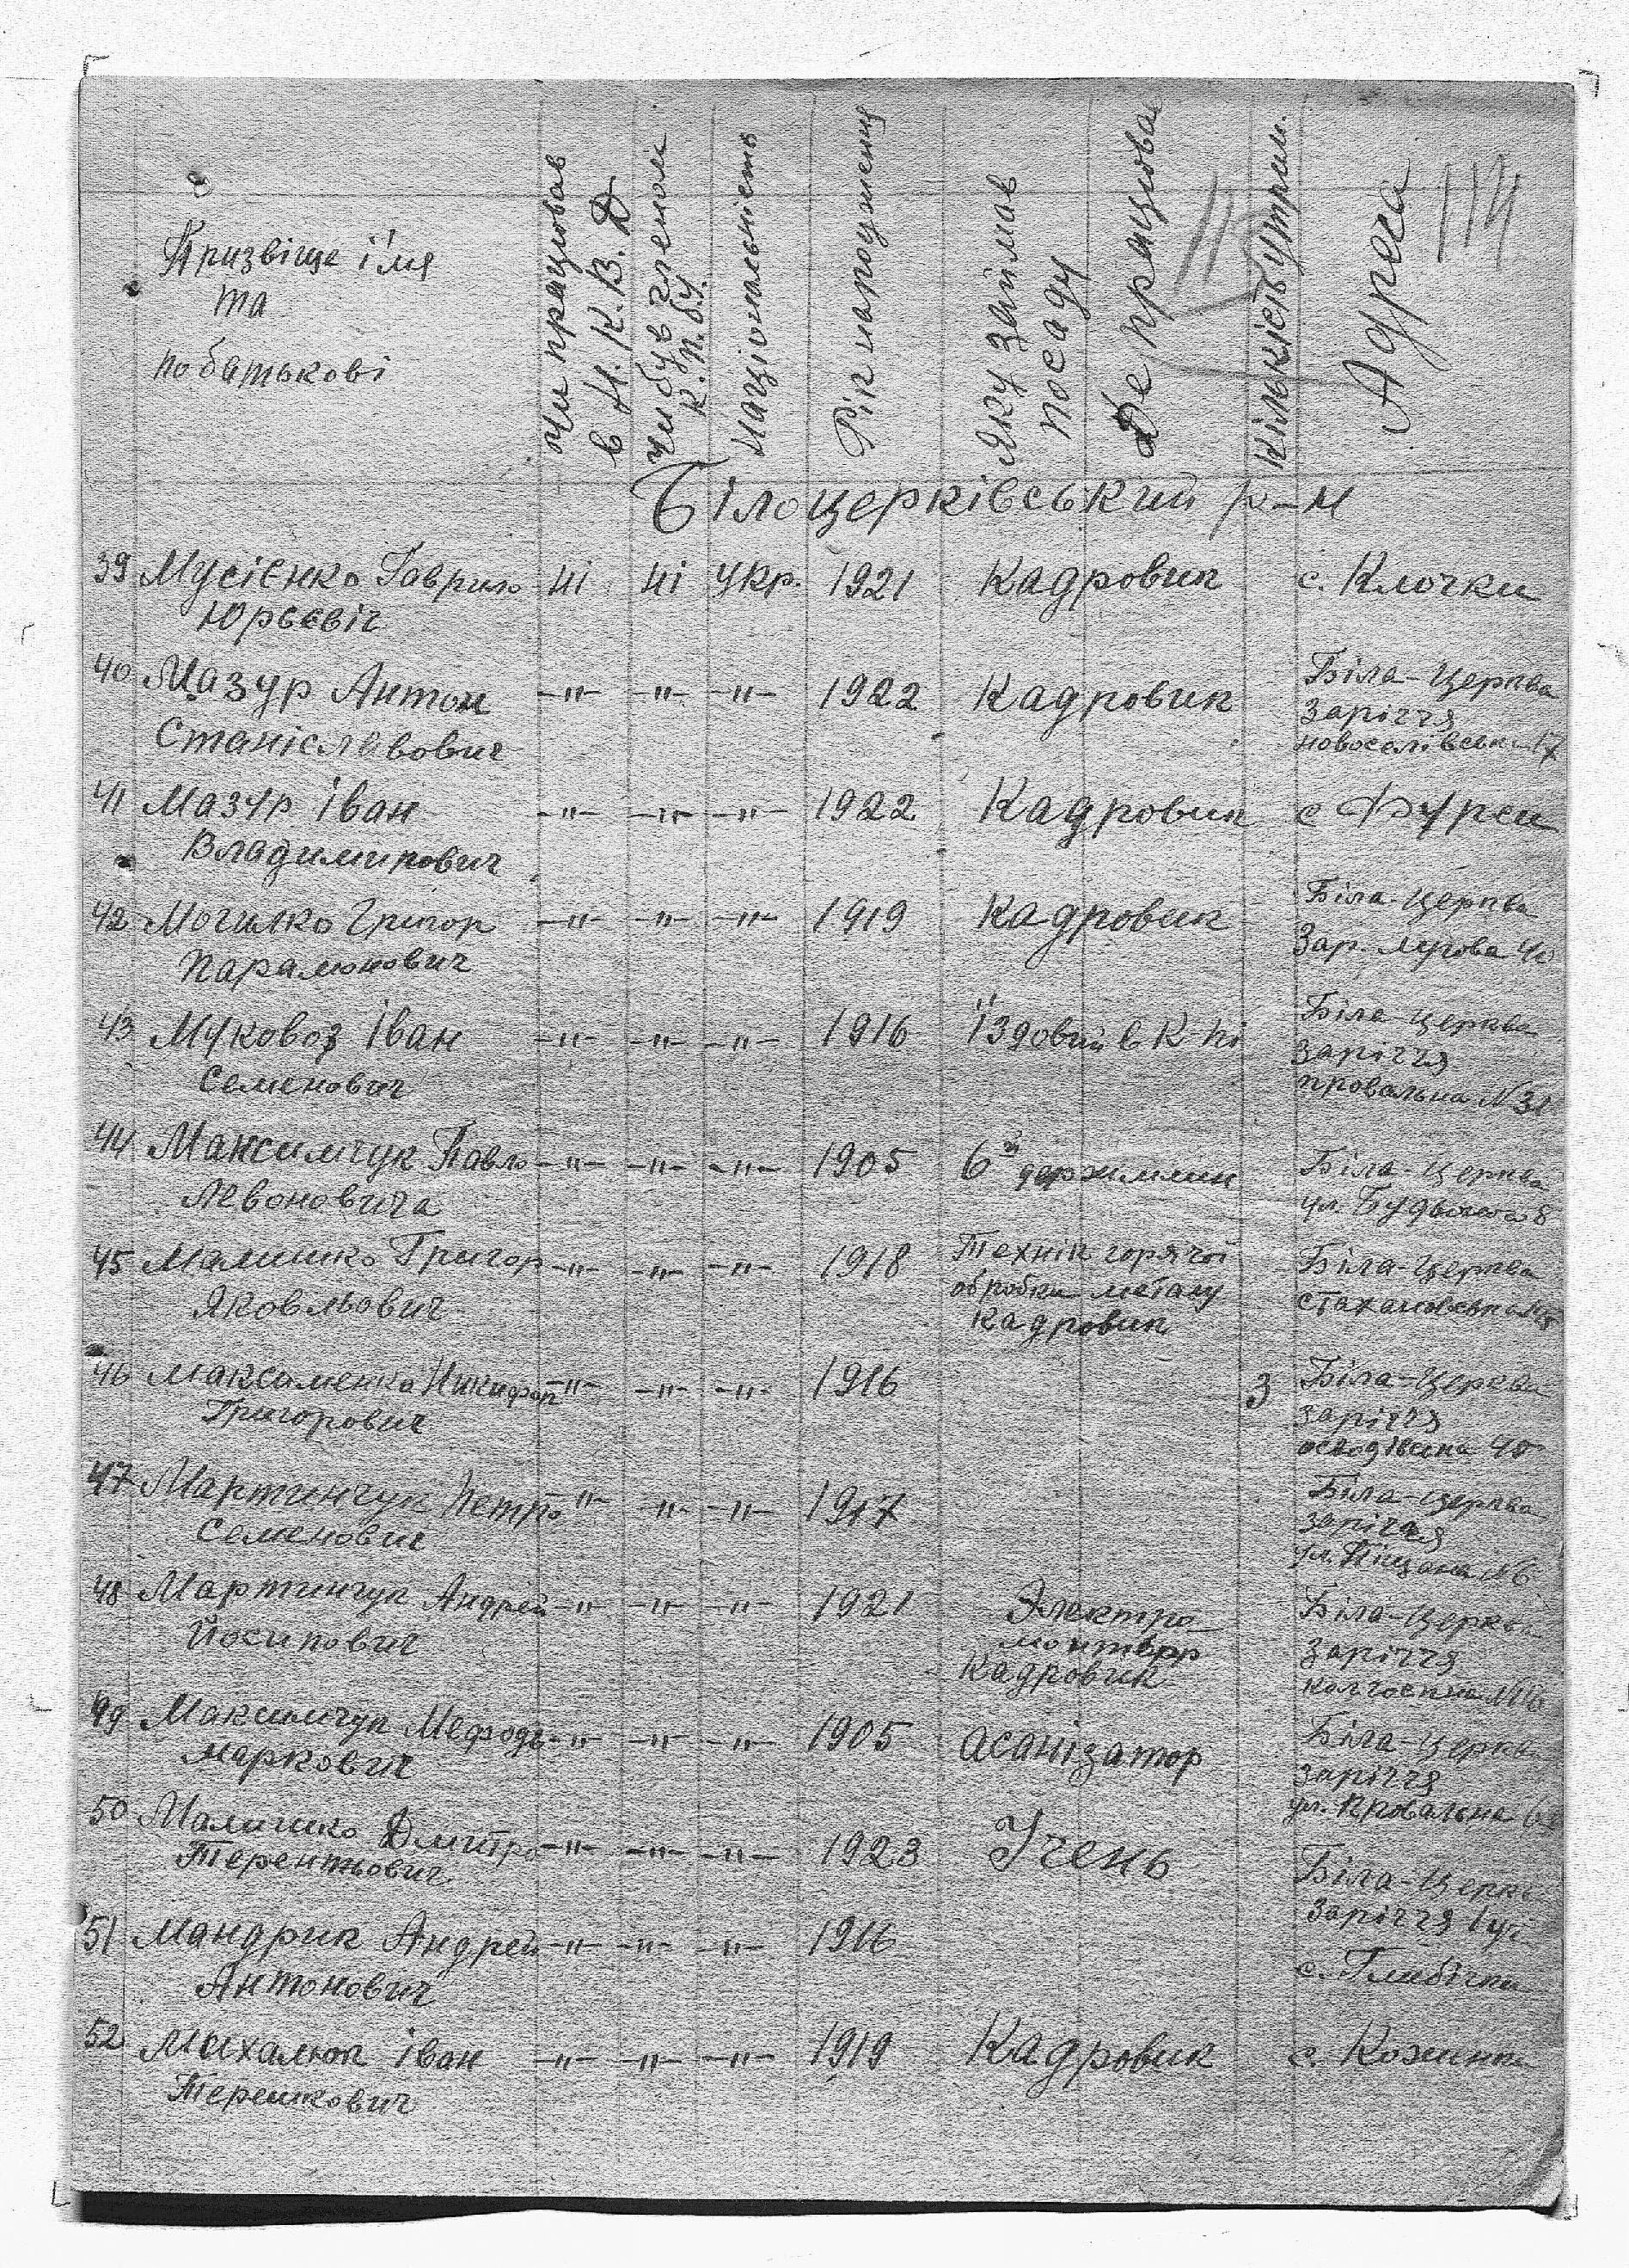 Призвіще ім'я
та
по батькові
Чи працював
в Н.К.В.Д
Чи був членом
К.П.б.У.
Національність
Рік народження
Яку займав
посаду
Де працював
Кількість утрим.
Адреса
114
Білоцерківський р-н
39 Мусієнко Гаврило ні ні укр. 1921 Кадровик с. Клочки
Юрьєвіч
40 Мазур Антон -"- -"- -"- 1922 Кадровик Біла-Церква
Заріччя
Станіславович
новоселівська 17
41 Мазур Іван -"- -"- -"- 1922 Кадровик с Фурси
Владимирович
42 Могилко Григор -"- -"- -"- 1919 Кадровик Біла-Церква
Парамонович Зар. Лугова 40
43 Муковоз Іван -"- -"- -"- 1916 їздовий в К-пі Біла-Церква
Заріччя
Семенович
провальна N 31
44 Максимчук Павло -"- -"- -"- 1905 Біла-Церква
Левоновича ул.
45 Григор -"- -"- -"- 1918 Технік горячої Біла-Церква
обробки металу
Яковльович
Кадровик
46 Максименко Никифор -"- -"- -"- 1916 3 Біла-Церква
Григорович Заріччя
47 Мартинчук Петро -"- -"- -"- 1917 Біла-Церква
Семенович Заріччя
ул. Піщана N 6
48 Мартинчук Андрей -"- -"- -"- 1921 Электро- Біла-Церква
Йосипович монтьор Заріччя
Кадровик
49 Максимчук Мефодь -"- -"- -"- 1905 асанізатор Біла-Церква
Маркович Заріччя
ул. Провальна
50 Дмитро -"- -"- -"- 1923 Учень Біла-Церкв
Терентьович
Заріччя
51 Мандрик Андрей -"- -"- -"- 1916 с. Глибічка
Антонович
52 Михалюк Іван -"- -"- -"- 1919 Кадровик с. Кожанка
Терешкович